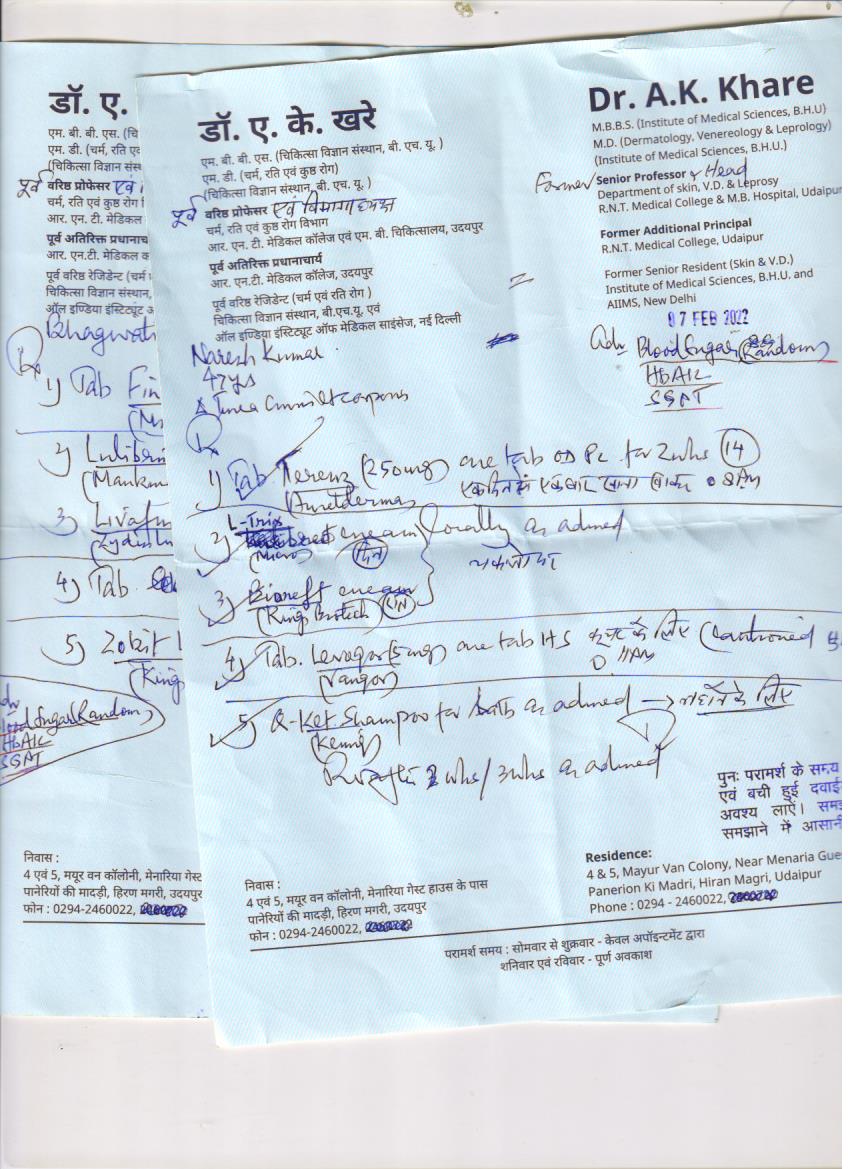 डॉ. ए.
एम. बी. बी. एस. (चि
एम. डी. (चर्म, रति एवं
(चिकित्सा विज्ञान संस
पूर्व वरिष्ठ प्रोफेसर एवं
चर्म, रति एवं कुष्ठ रोग
आर. एन. टी. मेडिकल
पूर्व अतिरिक्त प्रधानाच
आर. एन.टी. मेडिकल क
पूर्व वरिष्ठ रेजिडेन्ट (चर्म
चिकित्सा विज्ञान संस्थान,
ऑल इण्डिया इंस्टिट्यूट
Bhagwati
1) Tab Fin
2)
(Mankin
3)
4) Tab.
5) Zobit
(King
Blood Sugar (Random)
HbA1c
SGPT
निवास :
4 एवं 5, मयूर वन कॉलोनी, मेनारिया गेस्ट
पानेरियों की मादड़ी, हिरण मगरी, उदयपुर
फोन : 0294-2460022,
डॉ. ए. के. खरे
एम. बी. बी. एस. (चिकित्सा विज्ञान संस्थान, बी. एच. यू. )
एम. डी. (चर्म, रति एवं कुष्ठ रोग)
(चिकित्सा विज्ञान संस्थान, बी. एच. यू. )
पूर्व वरिष्ठ प्रोफेसर एवं विभागाध्यक्ष
चर्म, रति एवं कुष्ठ रोग विभाग
आर. एन. टी. मेडिकल कॉलेज एवं एम. बी. चिकित्सालय, उदयपुर
पूर्व अतिरिक्त प्रधानाचार्य
आर. एन.टी. मेडिकल कॉलेज, उदयपुर
पूर्व वरिष्ठ रेजिडेंट (चर्म एवं रति रोग )
चिकित्सा विज्ञान संस्थान, बी.एच.यू. एवं
ऑल इण्डिया इंस्टिट्यूट ऑफ मेडिकल साइंसेज, नई दिल्ली
Dr. A.K. Khare
M.B.B.S. (Institute of Medical Sciences, B.H.U)
M.D. (Dermatology, Venereology & Leprology)
(Institute of Medical Sciences, B.H.U.)
Former Senior Professor & Head
Department of skin, V.D. & Leprosy
R.N.T. Medical College & M.B. Hospital, Udaipur
Former Additional Principal
R.N.T. Medical College, Udaipur
Former Senior Resident (Skin & V.D.)
Institute of Medical Sciences, B.H.U. and
AIIMS, New Delhi
07 FEB 2022
Adv Blood Sugar (Random)
HbA1c
SGPT
Naresh Kumar
47 ys
Δ Tinea Cruris et corporis
1) Tab Terenz (250mg) one tab OD PC for 2 whs 14
एक दिन में एक बार खाना खाकर
2) L-Trix cream locally as advised
(Micro) दिन
3) cream
(King Biotech) रात
4) Tab. (5mg) one tab HS के लिए (cautioned
5) Q-Ket Shampoo for bath as advised → नहाने के लिए
2 whs / 3 whs as advised
पुनः परामर्श के समय
एवं बची हुई दवाई
अवश्य लाऐं। समझ
समझाने में आसानी
निवास :
4 एवं 5, मयूर वन कॉलोनी, मेनारिया गेस्ट हाउस के पास
पानेरियों की मादड़ी, हिरण मगरी, उदयपुर
फोन : 0294-2460022,
Residence:
4 & 5, Mayur Van Colony, Near Menaria Gue
Panerion Ki Madri, Hiran Magri, Udaipur
Phone : 0294 - 2460022,
परामर्श समय : सोमवार से शुक्रवार - केवल अपॉइन्टमेंट द्वारा
शनिवार एवं रविवार - पूर्ण अवकाश